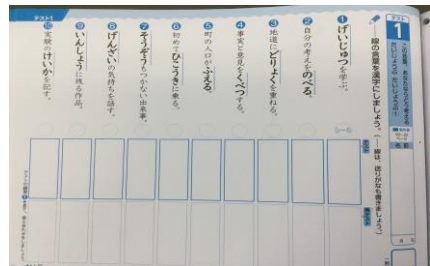 テスト1
テスト
1
――線の言葉を漢字にしましょう。(――線は、送りがなも書きましょう。)
1 げいじゅつを学ぶ。
2 自分の考えをのべる。
3 地道にどりょくを重ねる。
4 事実と意見をくべつする。
5 町の人口がふえる。
6 初めてひこうきに乗る。
7 そうぞうもつかない出来事。
8 げんざいの気持ちを話す。
9 いんしょうに残る作品。
10 実験のけいかを記す。